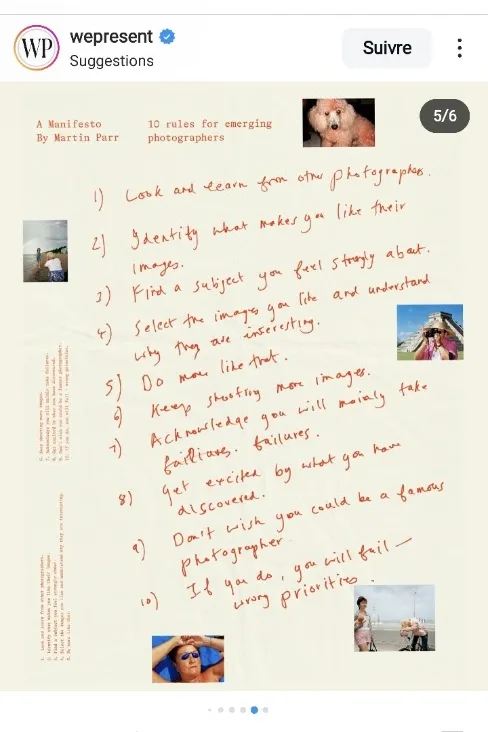 wepresent
Suggestions
Suivre
WP
5/6
A Manifesto
By Martin Parr
10 rules for emerging
photographers
1) Look and learn from other photographers.
2) Identify what makes you like their
images.
3) Find a subject you feel strongly about.
4) Select the images you like and understand
why they are interesting.
5) Do more like that.
6) Keep shooting more images.
7) Acknowledge you will mainly take
failures. failures.
8) Get excited by what you have
discovered.
9) Don't wish you could be a famous
photographer.
10) If you do, you will fail —
wrong priorities.